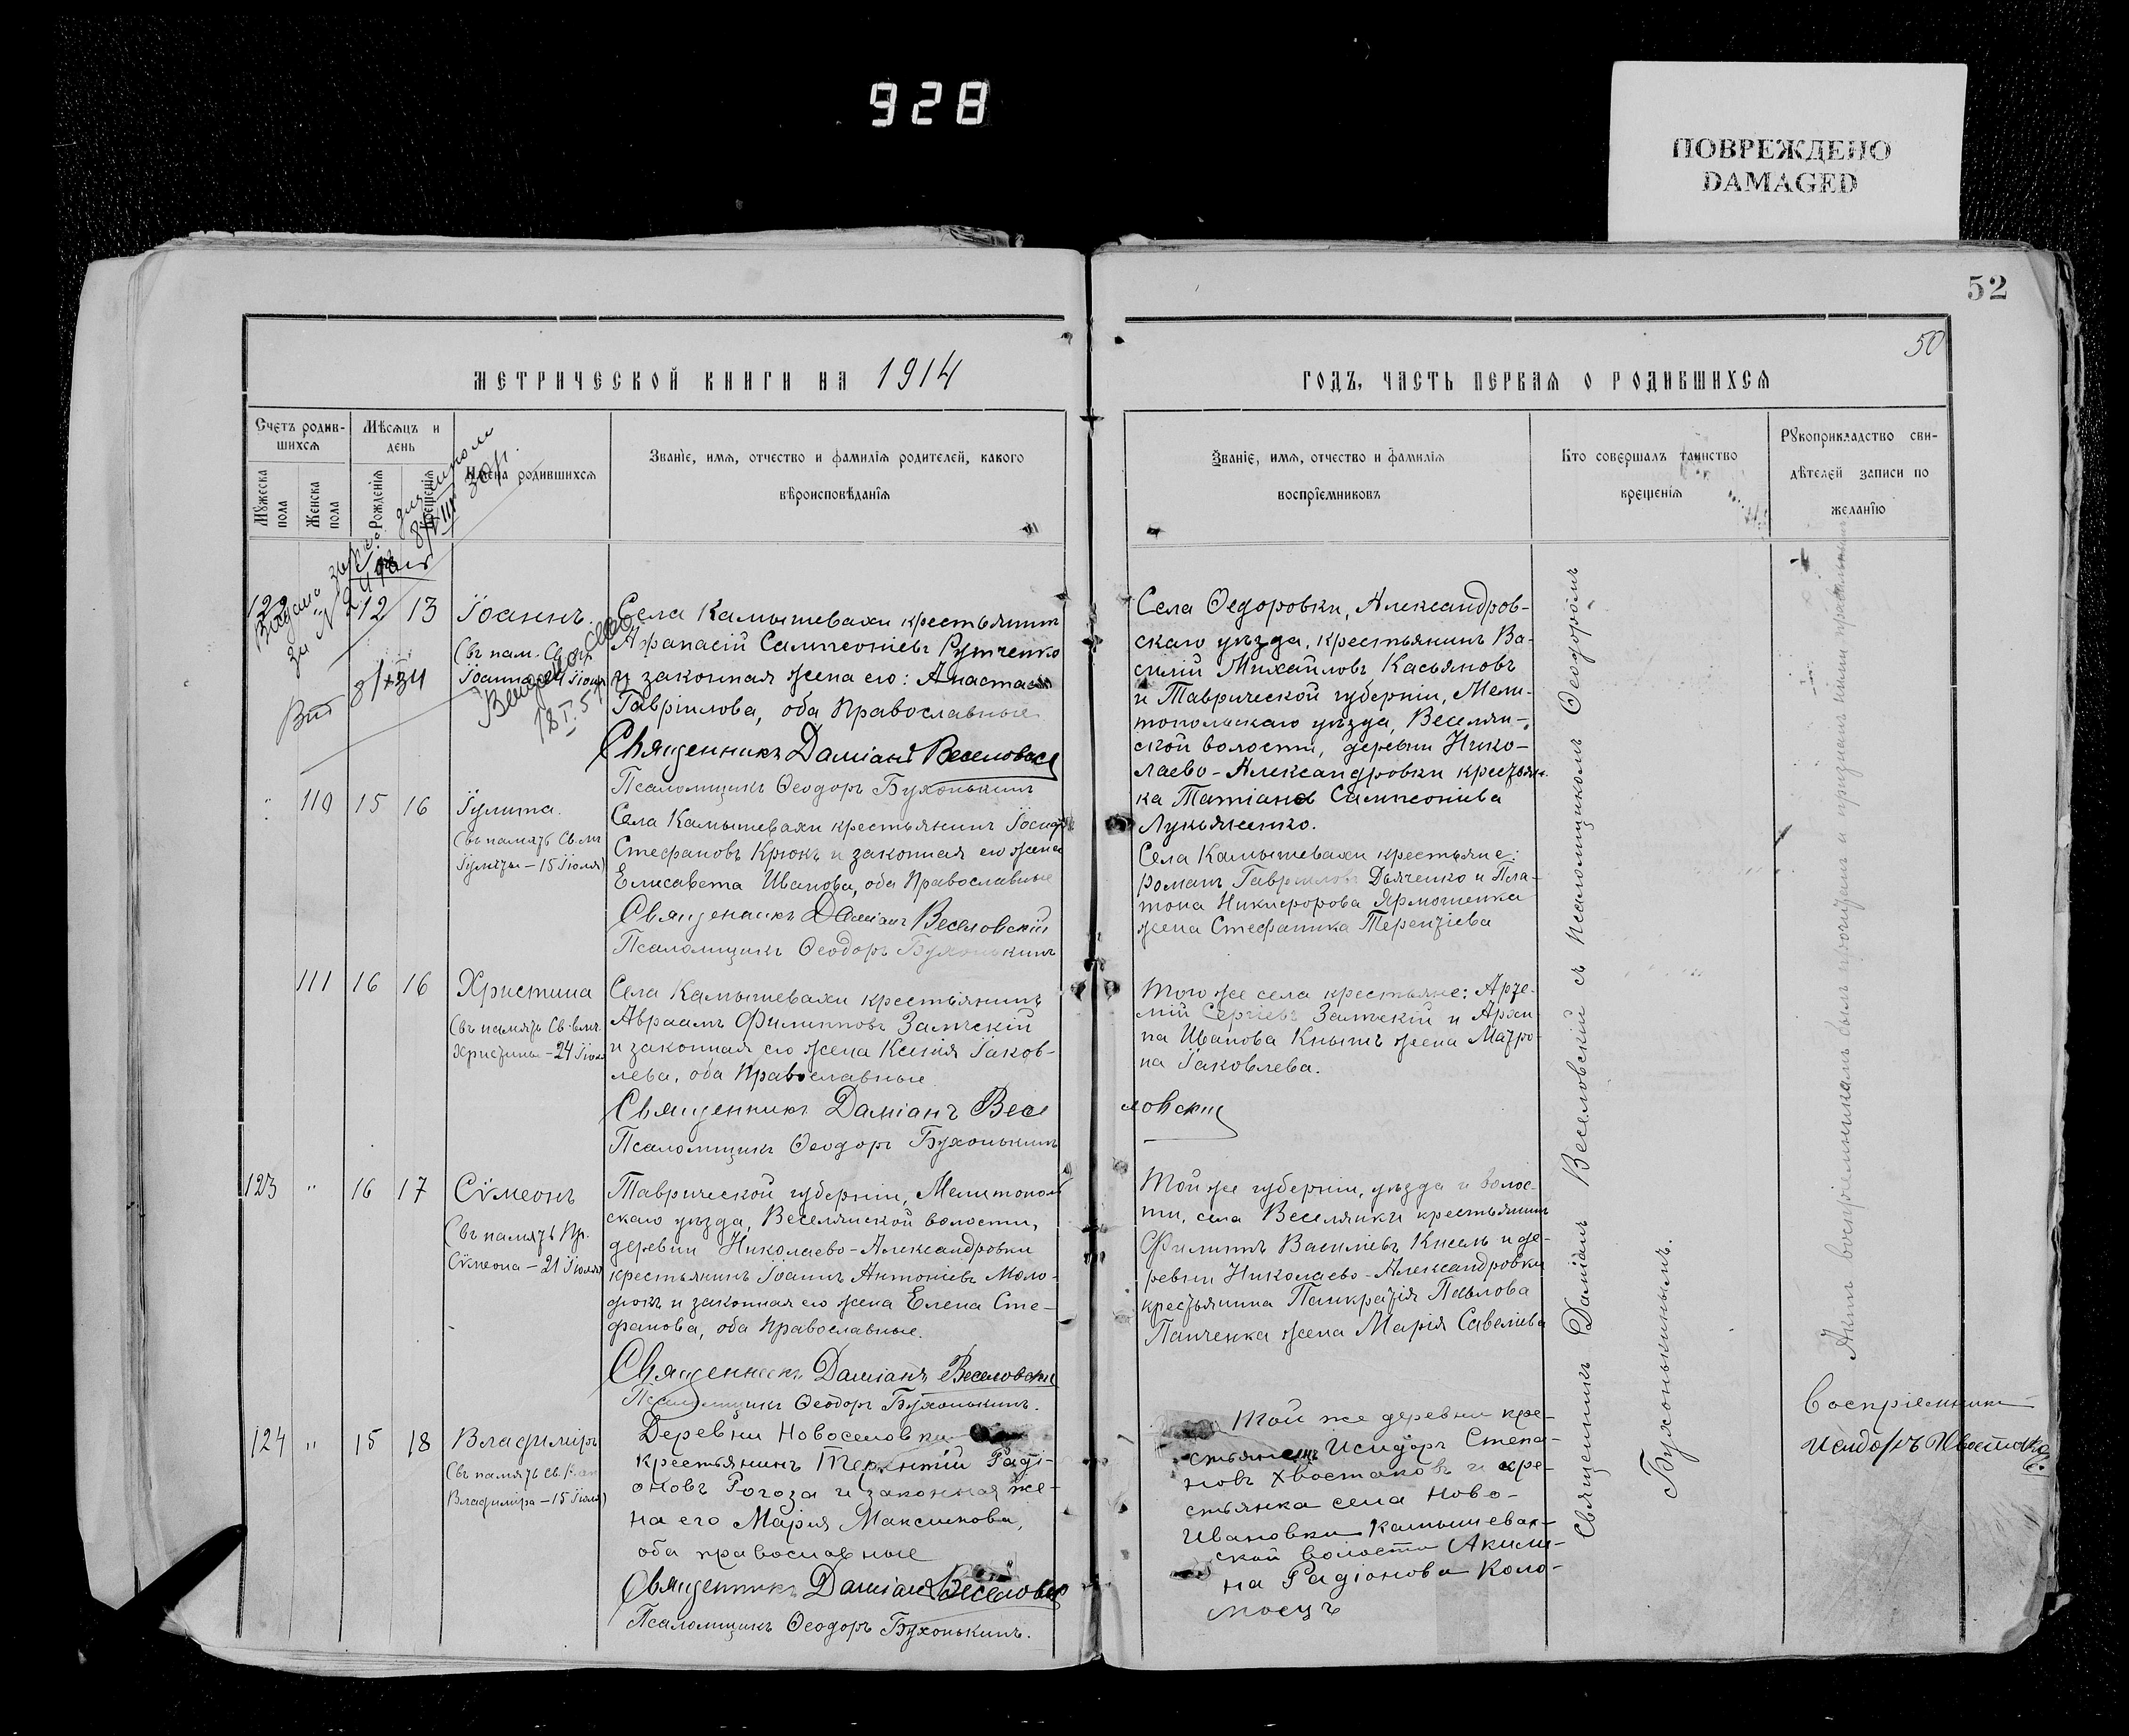 928
ПОВРЕЖДЕНО
DAMAGED
52
50
МЕТРИЧЕСКОЙ КНИГИ НА 1914
ГОДЪ, ЧАСТЬ ПЕРВАЯ О РОДИВШИХСЯ
Счетъ родив-
шихся
Мѣсяцъ и
день
Мужеска
пола
Женска
пола
Рожденія
Крещенія
Имена родившихся
Званіе, имя, отчество и фамилія родителей, какого
вѣроисповѣданія
Званіе, имя, отчество и фамилія
воспріемниковъ
Кто совершалъ таинство
крещенія
Рукоприкладство сви-
дѣтелей записи по
желанію
122
12
13
Іоаннъ.
(въ пам. Св.
Іоанна
Села Камышевахи крестьянинъ
Афанасій Сампсоніевъ Рутченко
и законная жена его: Анастасія
Гавріилова, оба Православные
Священникъ Даміанъ Веселовск
Псаломщикъ Ѳеодоръ Бухонькинъ
Села Ѳедоровки, Александров-
скаго уѣзда, крестьянинъ Ва-
силій Михайловъ Касьяновъ
и Таврической губерніи, Мели-
топольскаго уѣзда, Веселян-
ской волости, деревни Нико-
лаево-Александровки крестьян-
ка Татіана Сампсоніева
Лукьяненко.
18 I 51
110
15
16
Іулита.
(въ память Св. мч
Іулиты - 15 Іюля)
Села Камышевахи крестьянинъ Іосиф
Стефановъ Крюкъ и законная его жена
Елисавета Иванова, оба Православные
Священникъ Даміанъ Веселовскій
Псаломщикъ Ѳеодоръ Бухонькинъ
Села Камышевахи крестьяне:
Романъ Гавриловъ Дьяченко и Пла-
тона Никифорова Ярмошенка
жена Стефанида Терентіева
111
16
16
Христина
(въ память Св. влмч.
Христины - 24 Іюля
Села Камышевахи крестьянинъ
Авраамъ Филипповъ Залѣскій
и законная его жена Ксенія Іаков-
лева, оба Православные
Священникъ Даміанъ Весе
ловскій
Псаломщикъ Ѳеодоръ Бухонькинъ
Того же села крестьяне: Арте-
мій Сергіевъ Залѣскій и Архи-
па Иванова Кнышъ жена Матро-
на Іаковлева.
123
"
16
17
Сѵмеонъ
(въ память Пр.
Сѵмеона - 21 Іюля)
Таврической губерніи, Мелитополь
скаго уѣзда, Веселянской волости,
деревни Николаево-Александровки
крестьянинъ Іоаннъ Антоніевъ Моло-
докъ и законная его жена Елена Сте-
фанова, оба Православные.
Священникъ Даміанъ Веселовскій
Псаломщикъ Ѳеодоръ Бухонькинъ.
Той же губерніи, уѣзда и волос-
ти, села Веселянки крестьянинъ
Филиппъ Василіевъ Кисель и де-
ревни Николаево-Александровки
крестьянина Панкратія Павлова
Панченка жена Марія Савеліева
124
"
15
18
Владиміръ
(въ память Св. Княз
Владиміра - 15 Іюля)
Деревни Новоселовки
крестьянинъ Терентій Радi-
оновъ Рогоза и законная же-
на его Марія Максимова,
оба православные
Священникъ Даміанъ Веселовск
Псаломщикъ Ѳеодоръ Бухонькинъ.
Той же деревни кре-
стьянинъ Исидоръ Степа-
новъ Хвостаковъ и кре-
стьянка села Ново-
Ивановки Камышевах-
ской волости Акили-
на Радіонова Коло-
моецъ
Священникъ Даміанъ Веселовскій съ псаломщикомъ Ѳеодоромъ
Бухонькинымъ.
Воспріемникъ
Исидоръ